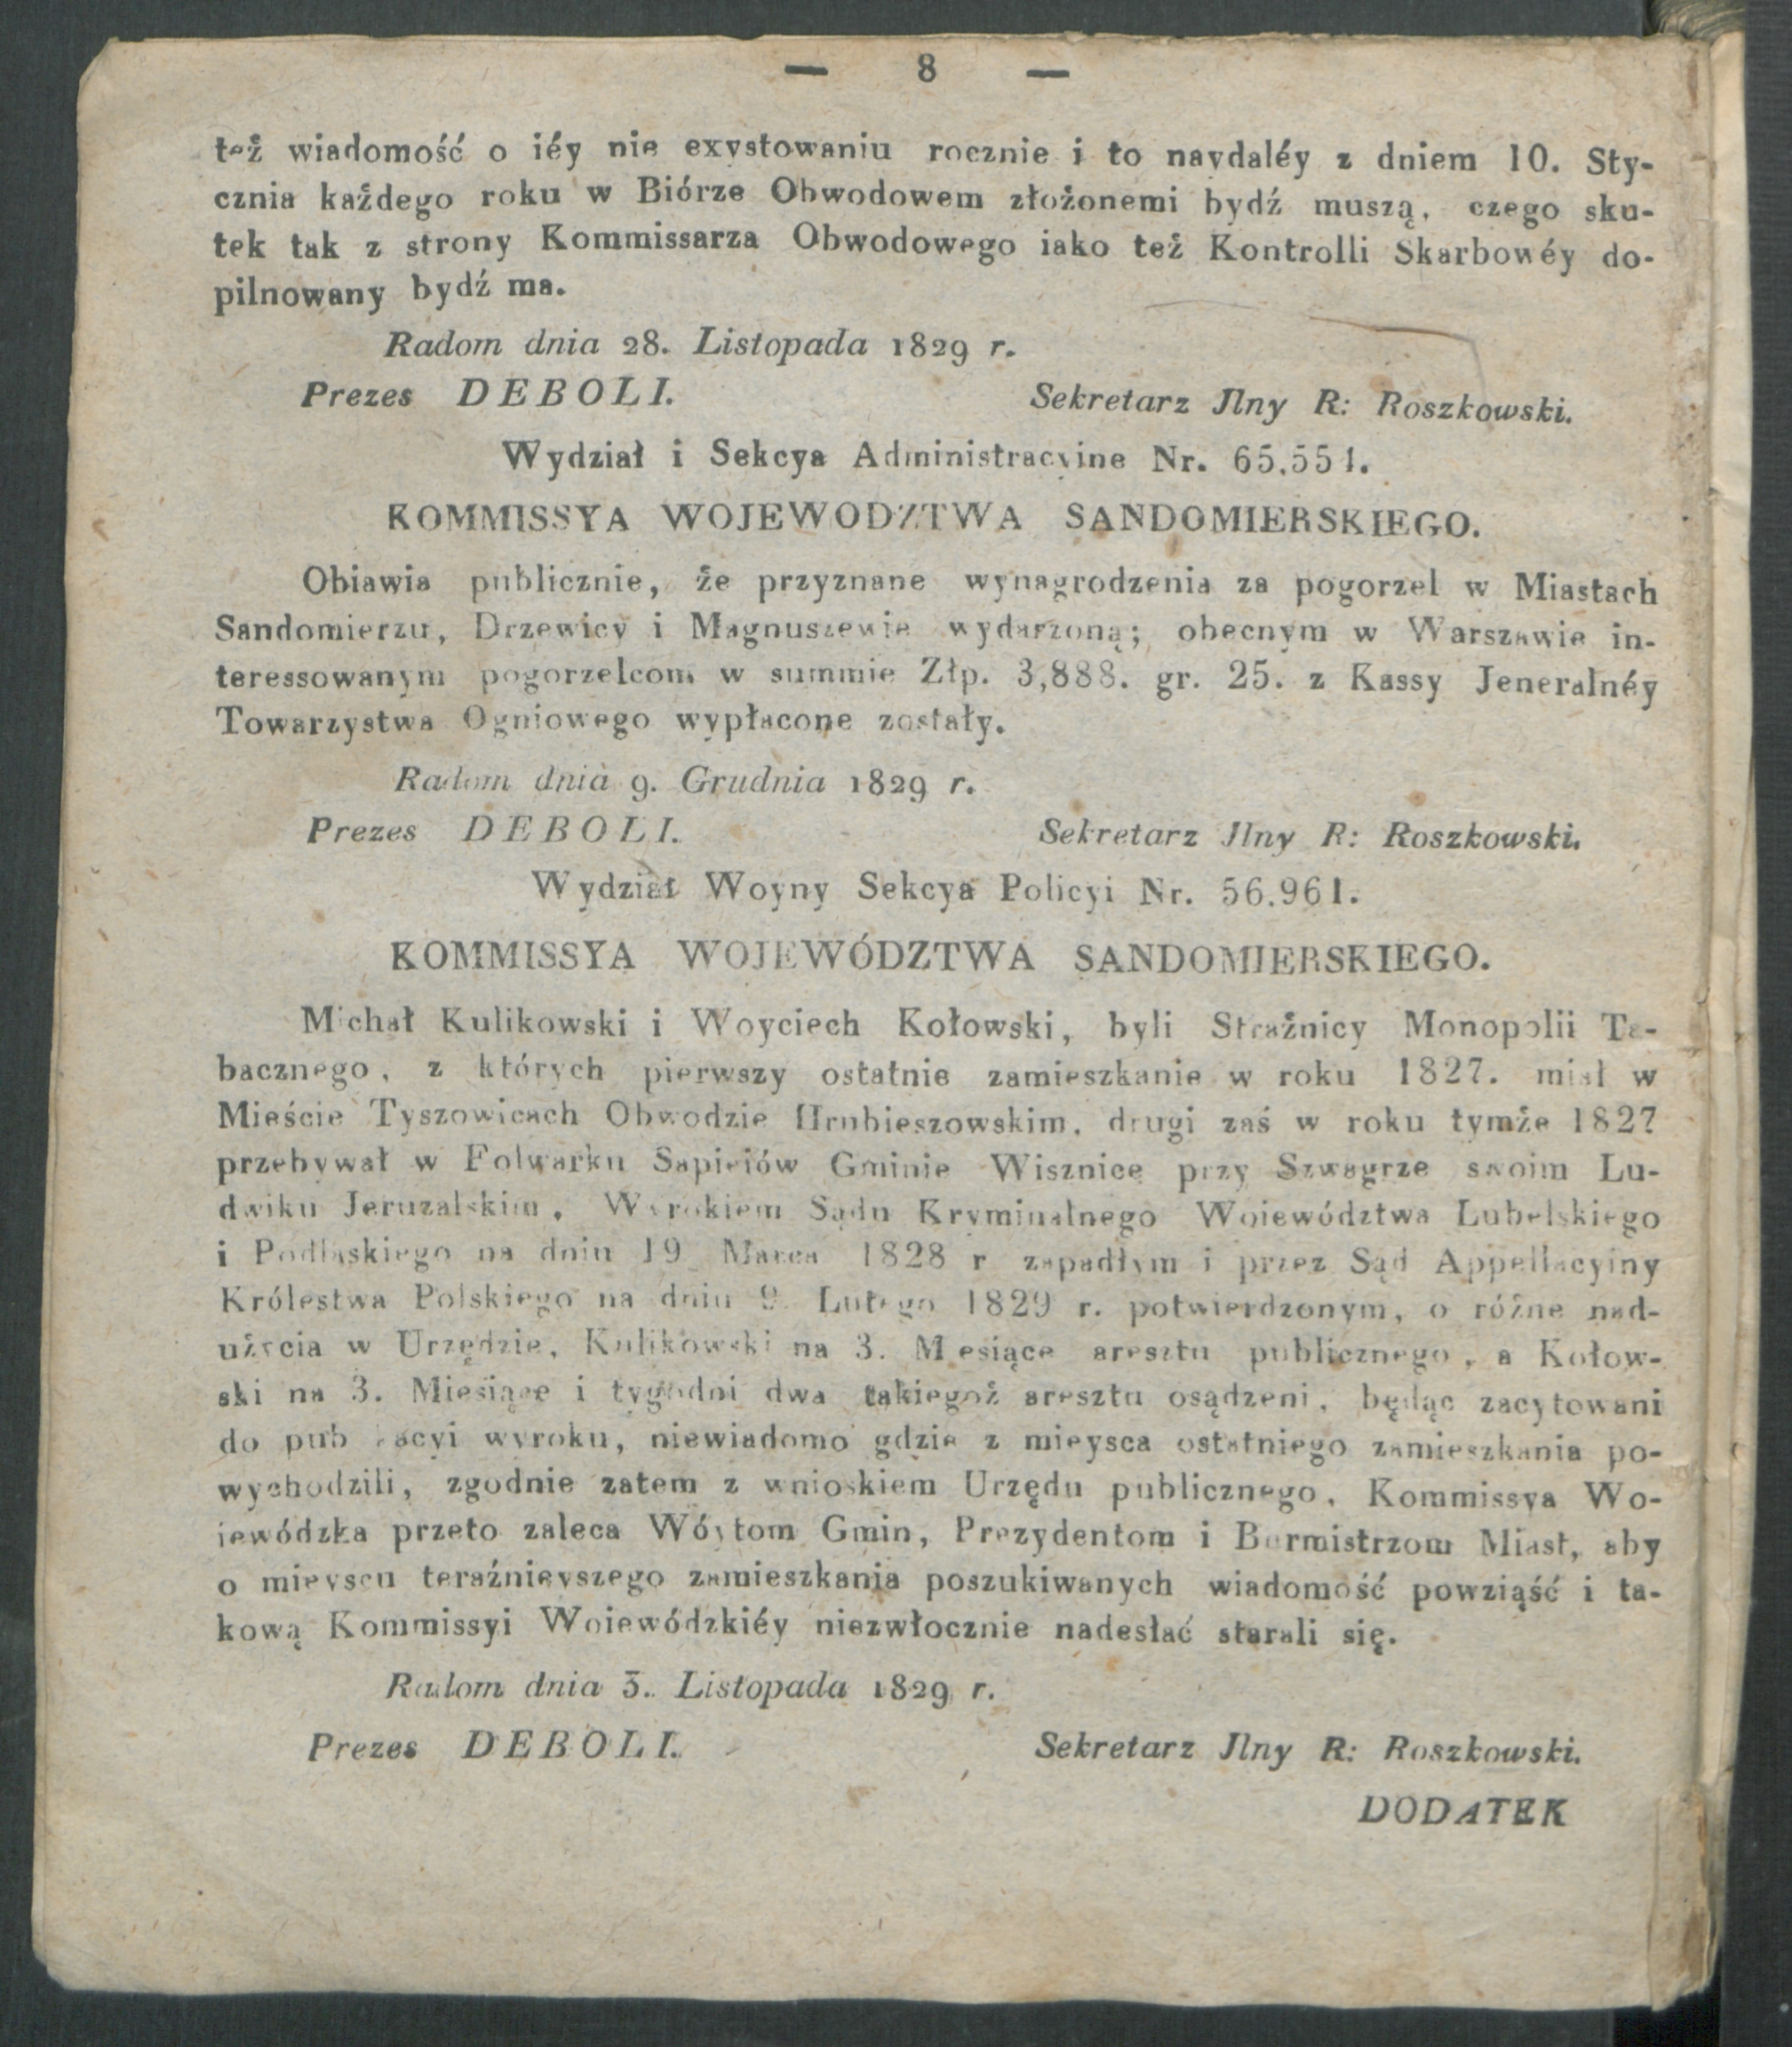 — 8 —
też wiadomość o iéy nie exystowaniu rocznie i to naydaléy z dniem 10. Sty-
cznia każdego roku w Biórze Obwodowem złożonemi bydź muszą, czego sku-
tek tak z strony Kommissarza Obwodowego iako też Kontrolli Skarbowéy do-
pilnowany bydź ma.
Radom dnia 28. Listopada 1829 r.
Prezes DEBOLI. Sekretarz Jlny R: Roszkowski.
Wydział i Sekcya Administracyine Nr. 65,551.
KOMMISSYA WOJEWODZTWA SANDOMIERSKIEGO.
Obiawia publicznie, że przyznane wynagrodzenia za pogorzel w Miastach
Sandomierzu, Drzewicy i Magnuszewie wydarzoną; obecnym w Warszawie in-
teressowanym pogorzelcom w summie Złp. 3,888. gr. 25. z Kassy Jeneralnéy
Towarzystwa Ogniowego wypłacone zostały.
Radom dnia 9. Grudnia 1829 r.
Prezes DEBOLI. Sekretarz Jlny R: Roszkowski.
Wydział Woyny Sekcya Policyi Nr. 56.961.
KOMMISSYA WOJEWÓDZTWA SANDOMIERSKIEGO.
Michał Kulikowski i Woyciech Kołowski, byli Strażnicy Monopolii Ta-
bacznego, z których pierwszy ostatnie zamieszkanie w roku 1827. miał w
Mieście Tyszowicach Obwodzie Hrubieszowskim, drugi zaś w roku tymże 1827
przebywał w Folwarku Sapieiów Gminie Wisznice przy Szwagrze swoim Lu-
dwiku Jeruzalskim, Wyrokiem Sądu Kryminalnego Woiewództwa Lubelskiego
i Podlaskiego na dniu 19 Marca 1828 r zapadłym i przez Sąd Appellacyiny
Królestwa Polskiego na dniu 9. Lutego 1829 r. potwierdzonym, o różne nad-
użycia w Urzędzie, Kulikowski na 3. Miesiące aresztu publicznego, a Kołow-
ski na 3. Miesiące i tygodni dwa takiegoż aresztu osądzeni, będąc zacytowani
do publikacyi wyroku, niewiadomo gdzie z mieysca ostatniego zamieszkania po-
wychodzili, zgodnie zatem z wnioskiem Urzędu publicznego, Kommissya Wo-
iewódzka przeto zaleca Wóytom Gmin, Prezydentom i Burmistrzom Miast, aby
o mieyscu teraźnieyszego zamieszkania poszukiwanych wiadomość powziąść i ta-
kową Kommissyi Woiewódzkiéy niezwłocznie nadesłać starali się.
Radom dnia 3. Listopada 1829 r.
Prezes DEBOLI. Sekretarz Jlny R: Roszkowski.
DODATEK